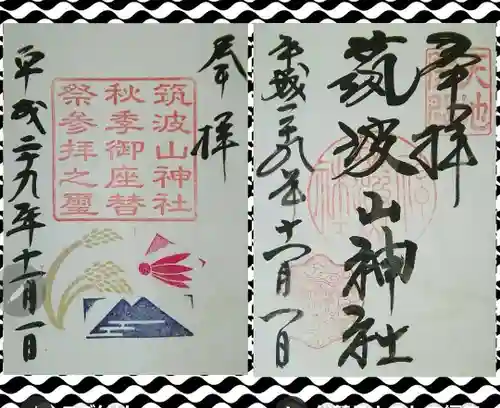 奉拝
筑波山神社
秋季御座替
祭参拝之璽
平成二十九年十一月一日
奉拝
筑波山神社
平成二十九年十一月一日